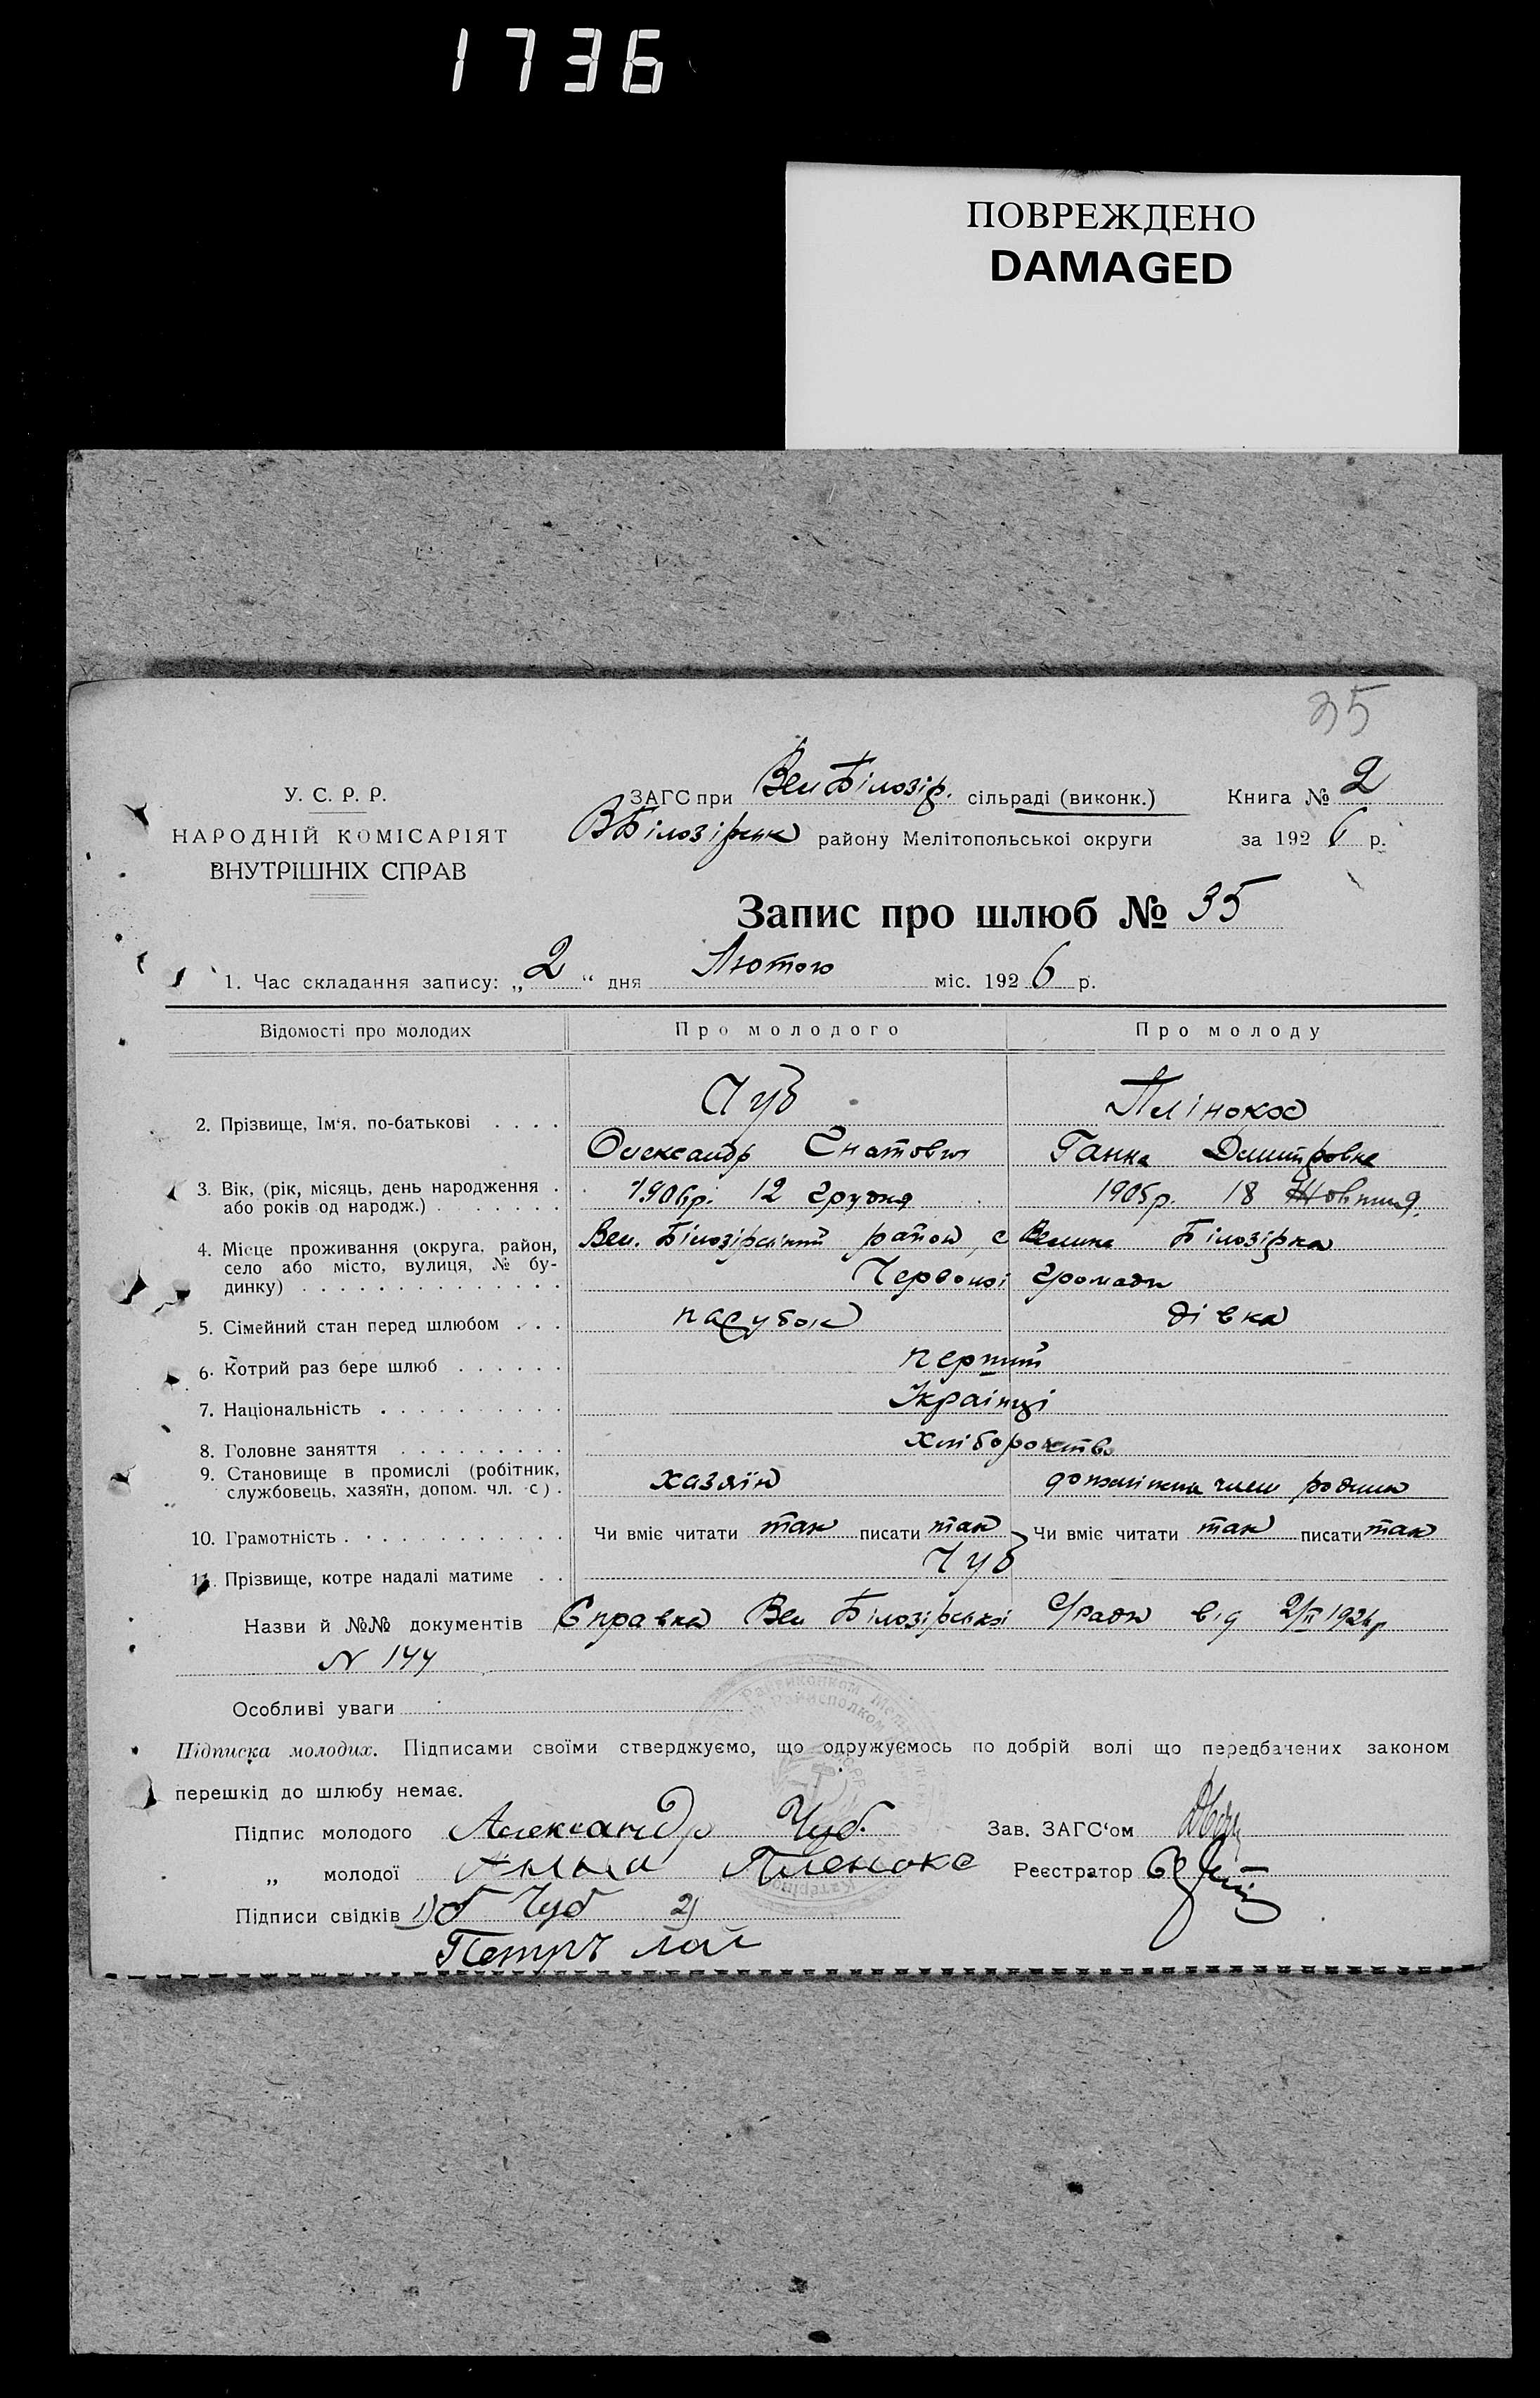 1736
ПОВРЕЖДЕНО
DAMAGED
35
У. С. Р. Р.
НАРОДНІЙ КОМІСАРІЯТ
ВНУТРІШНІХ СПРАВ
ЗАГС при Вел Білозір. сільраді (виконк.) Книга № 2
ВБілозірськ району Мелітопольської округи за 1926 р.
Запис про шлюб № 35
1. Час складання запису: „2“ дня Лютого міс. 1926 р.
Відомості про молодих Про молодого Про молоду
2. Прізвище, Ім‘я, по-батькові Чуб Плінокос
Олександр Гнатович Ганна Дмитровна
3. Вік, (рік, місяць, день народження або років од народж.) 1906р. 12 грудня 1905р. 18 Жовтня.
4. Місце проживання (округа, район, село або місто, вулиця, № будинку) Вел. Білозірський район, с Велика Білозірка
Червоної громади
5. Сімейний стан перед шлюбом парубок дівка
6. Котрий раз бере шлюб перший
7. Національність Українці
8. Головне заняття хліборобство
9. Становище в промислі (робітник, службовець, хазяїн, допом. чл. с) хазяїн член родини
10. Грамотність Чи вміє читати так писати так Чи вміє читати так писати так
11. Прізвище, котре надалі матиме Чуб
Назви й №№ документів Справка Вел Білозірської с/ради від 2/II 1926р
N 144
Особливі уваги
Підписка молодих. Підписами своїми стверджуємо, що одружуємось по добрій волі що передбачених законом
перешкід до шлюбу немає.
Підпис молодого Александр Чуб. Зав. ЗАГС‘ом
„ молодої Анна Пленокос Реєстратор
Підписи свідків 1) Чуб 2)
Петръ